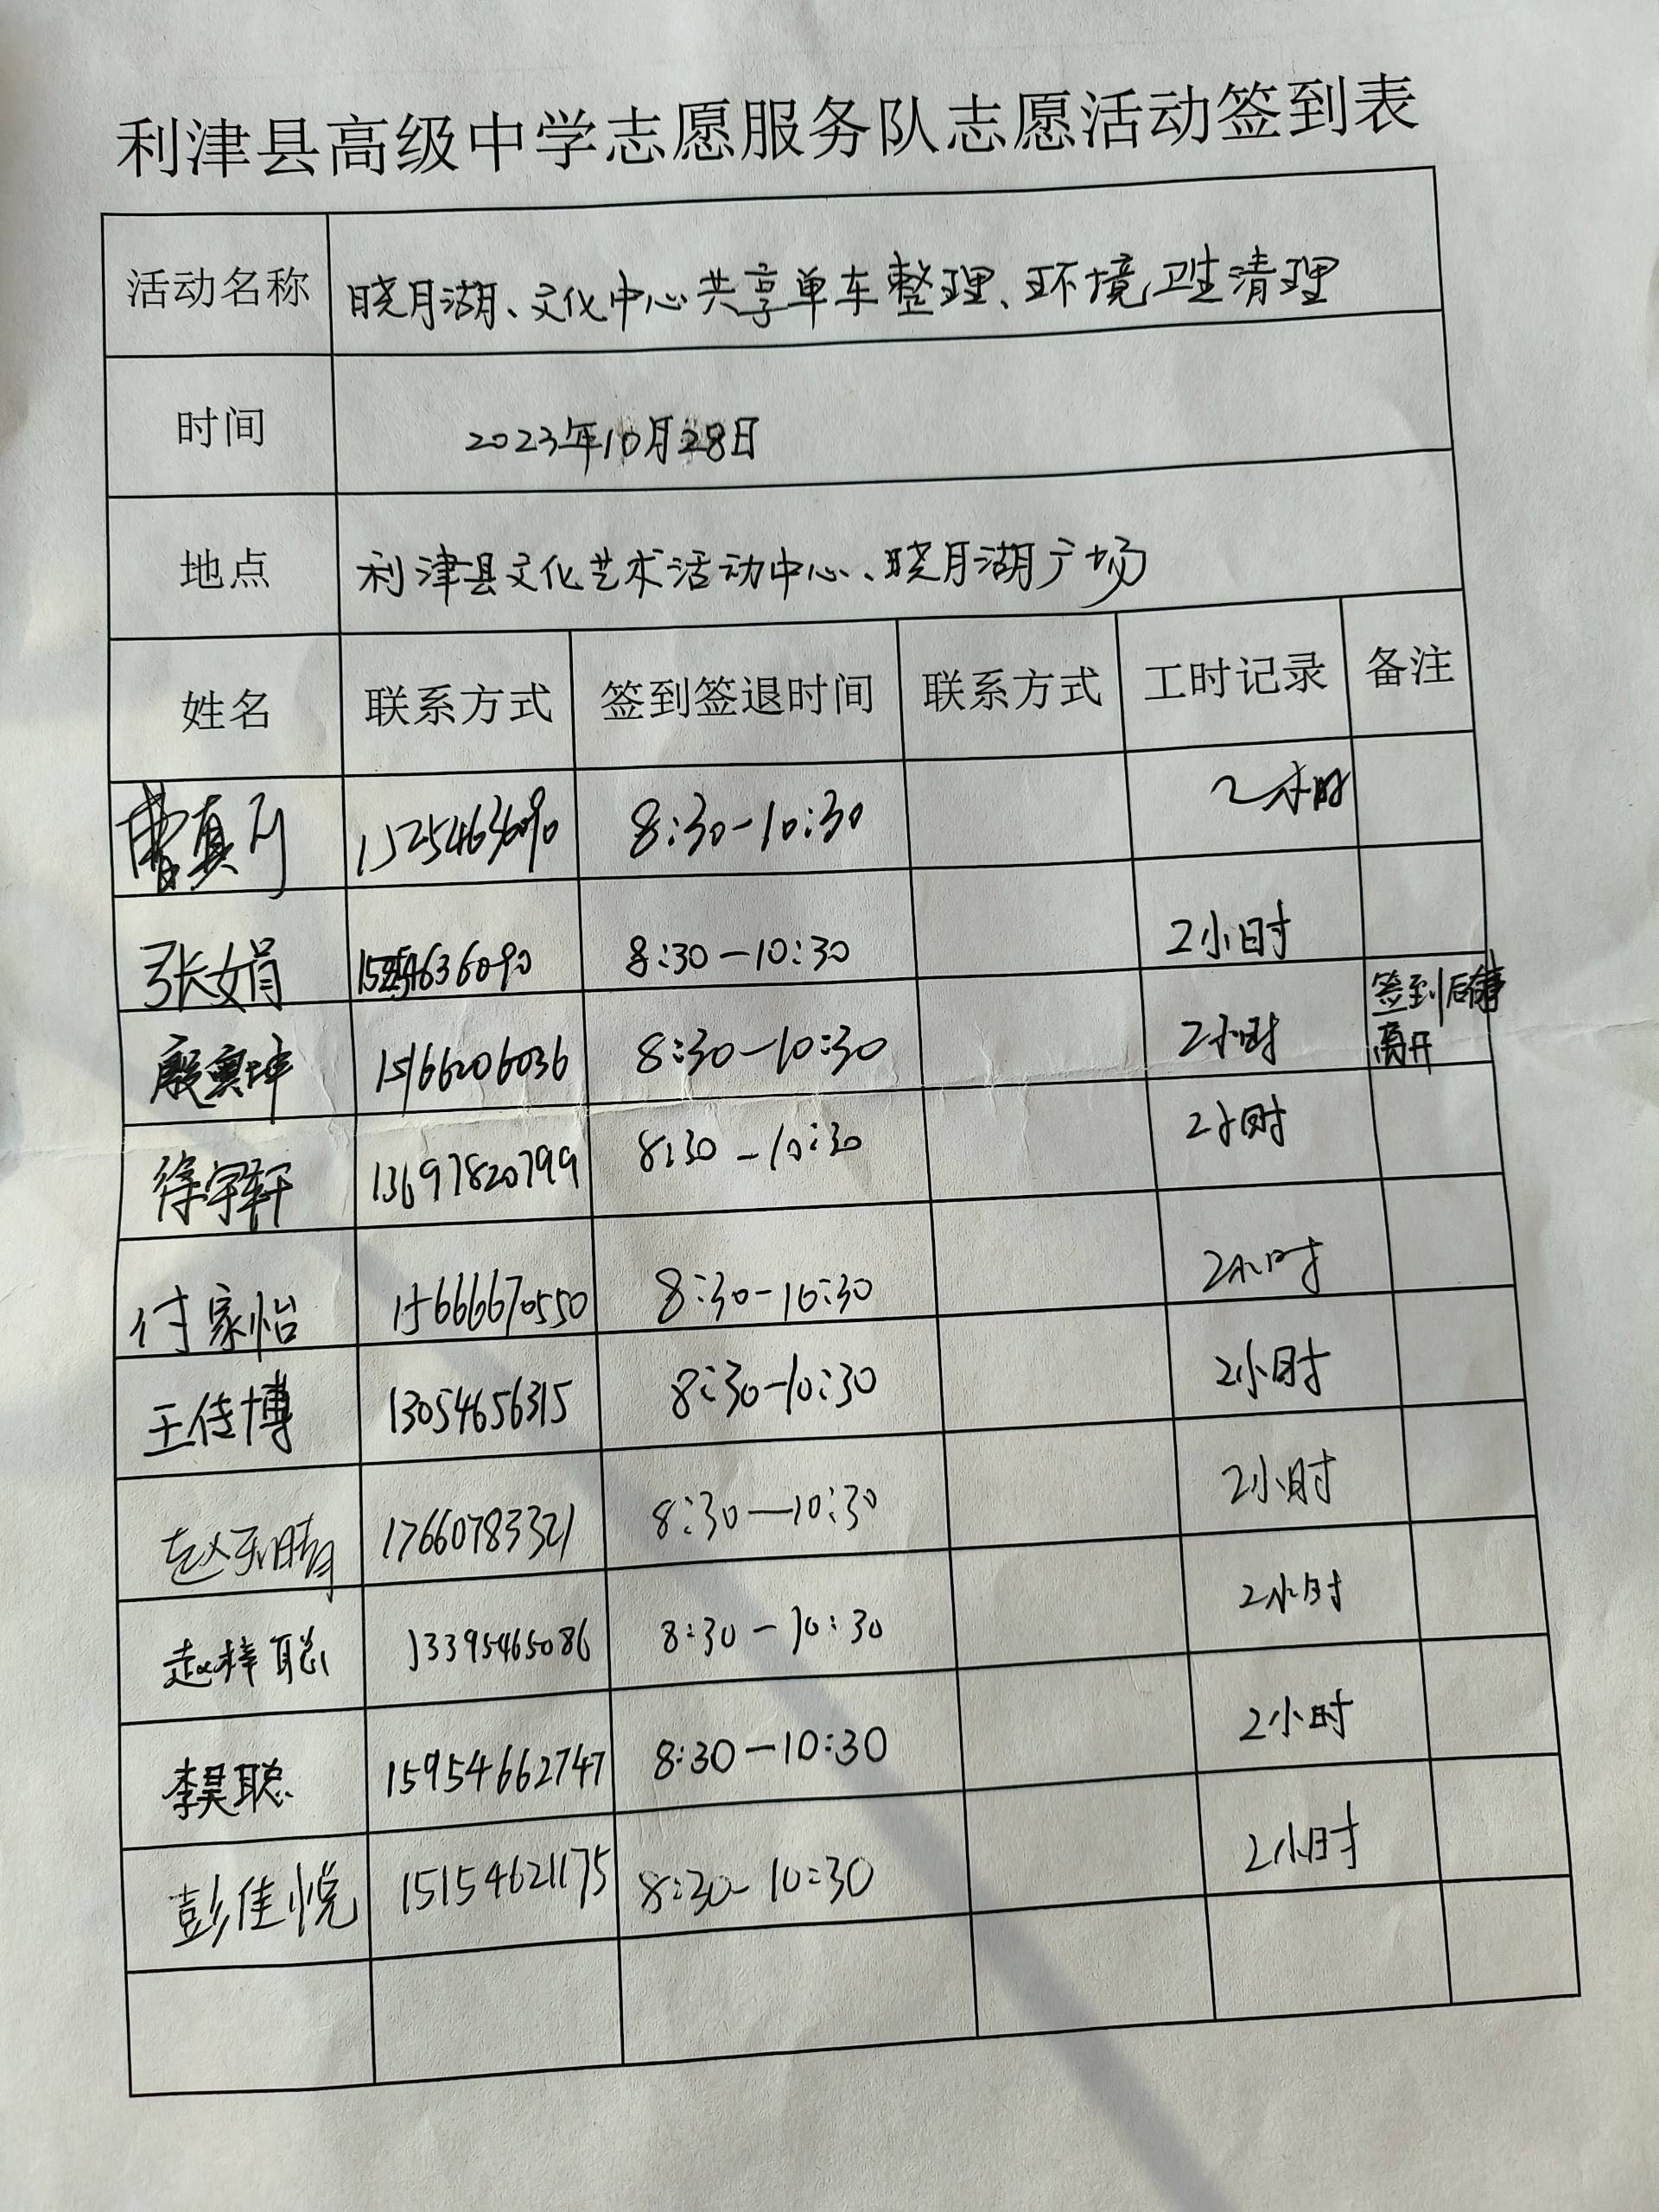 利津县高级中学志愿服务队志愿活动签到表
活动名称 晓月湖、文化中心共享单车整理、环境卫生清理
时间 2023年10月28日
地点 利津县文化艺术活动中心、晓月湖广场
姓名 联系方式 签到签退时间 联系方式 工时记录 备注
曹真 15254636090 8:30-10:30 2小时
张娟 15254636090 8:30-10:30 2小时
殷寅坤 15166206036 8:30-10:30 2小时 签到后 离开
徐宇轩 13697820799 8:30-10:30 2小时
付家怡 15666670550 8:30-10:30 2小时
王传博 13054656315 8:30-10:30 2小时
赵 晴 17660783321 8:30-10:30 2小时
赵梓聪 13395465086 8:30-10:30 2小时
李昊聪 15954662747 8:30-10:30 2小时
彭佳悦 15154621175 8:30-10:30 2小时